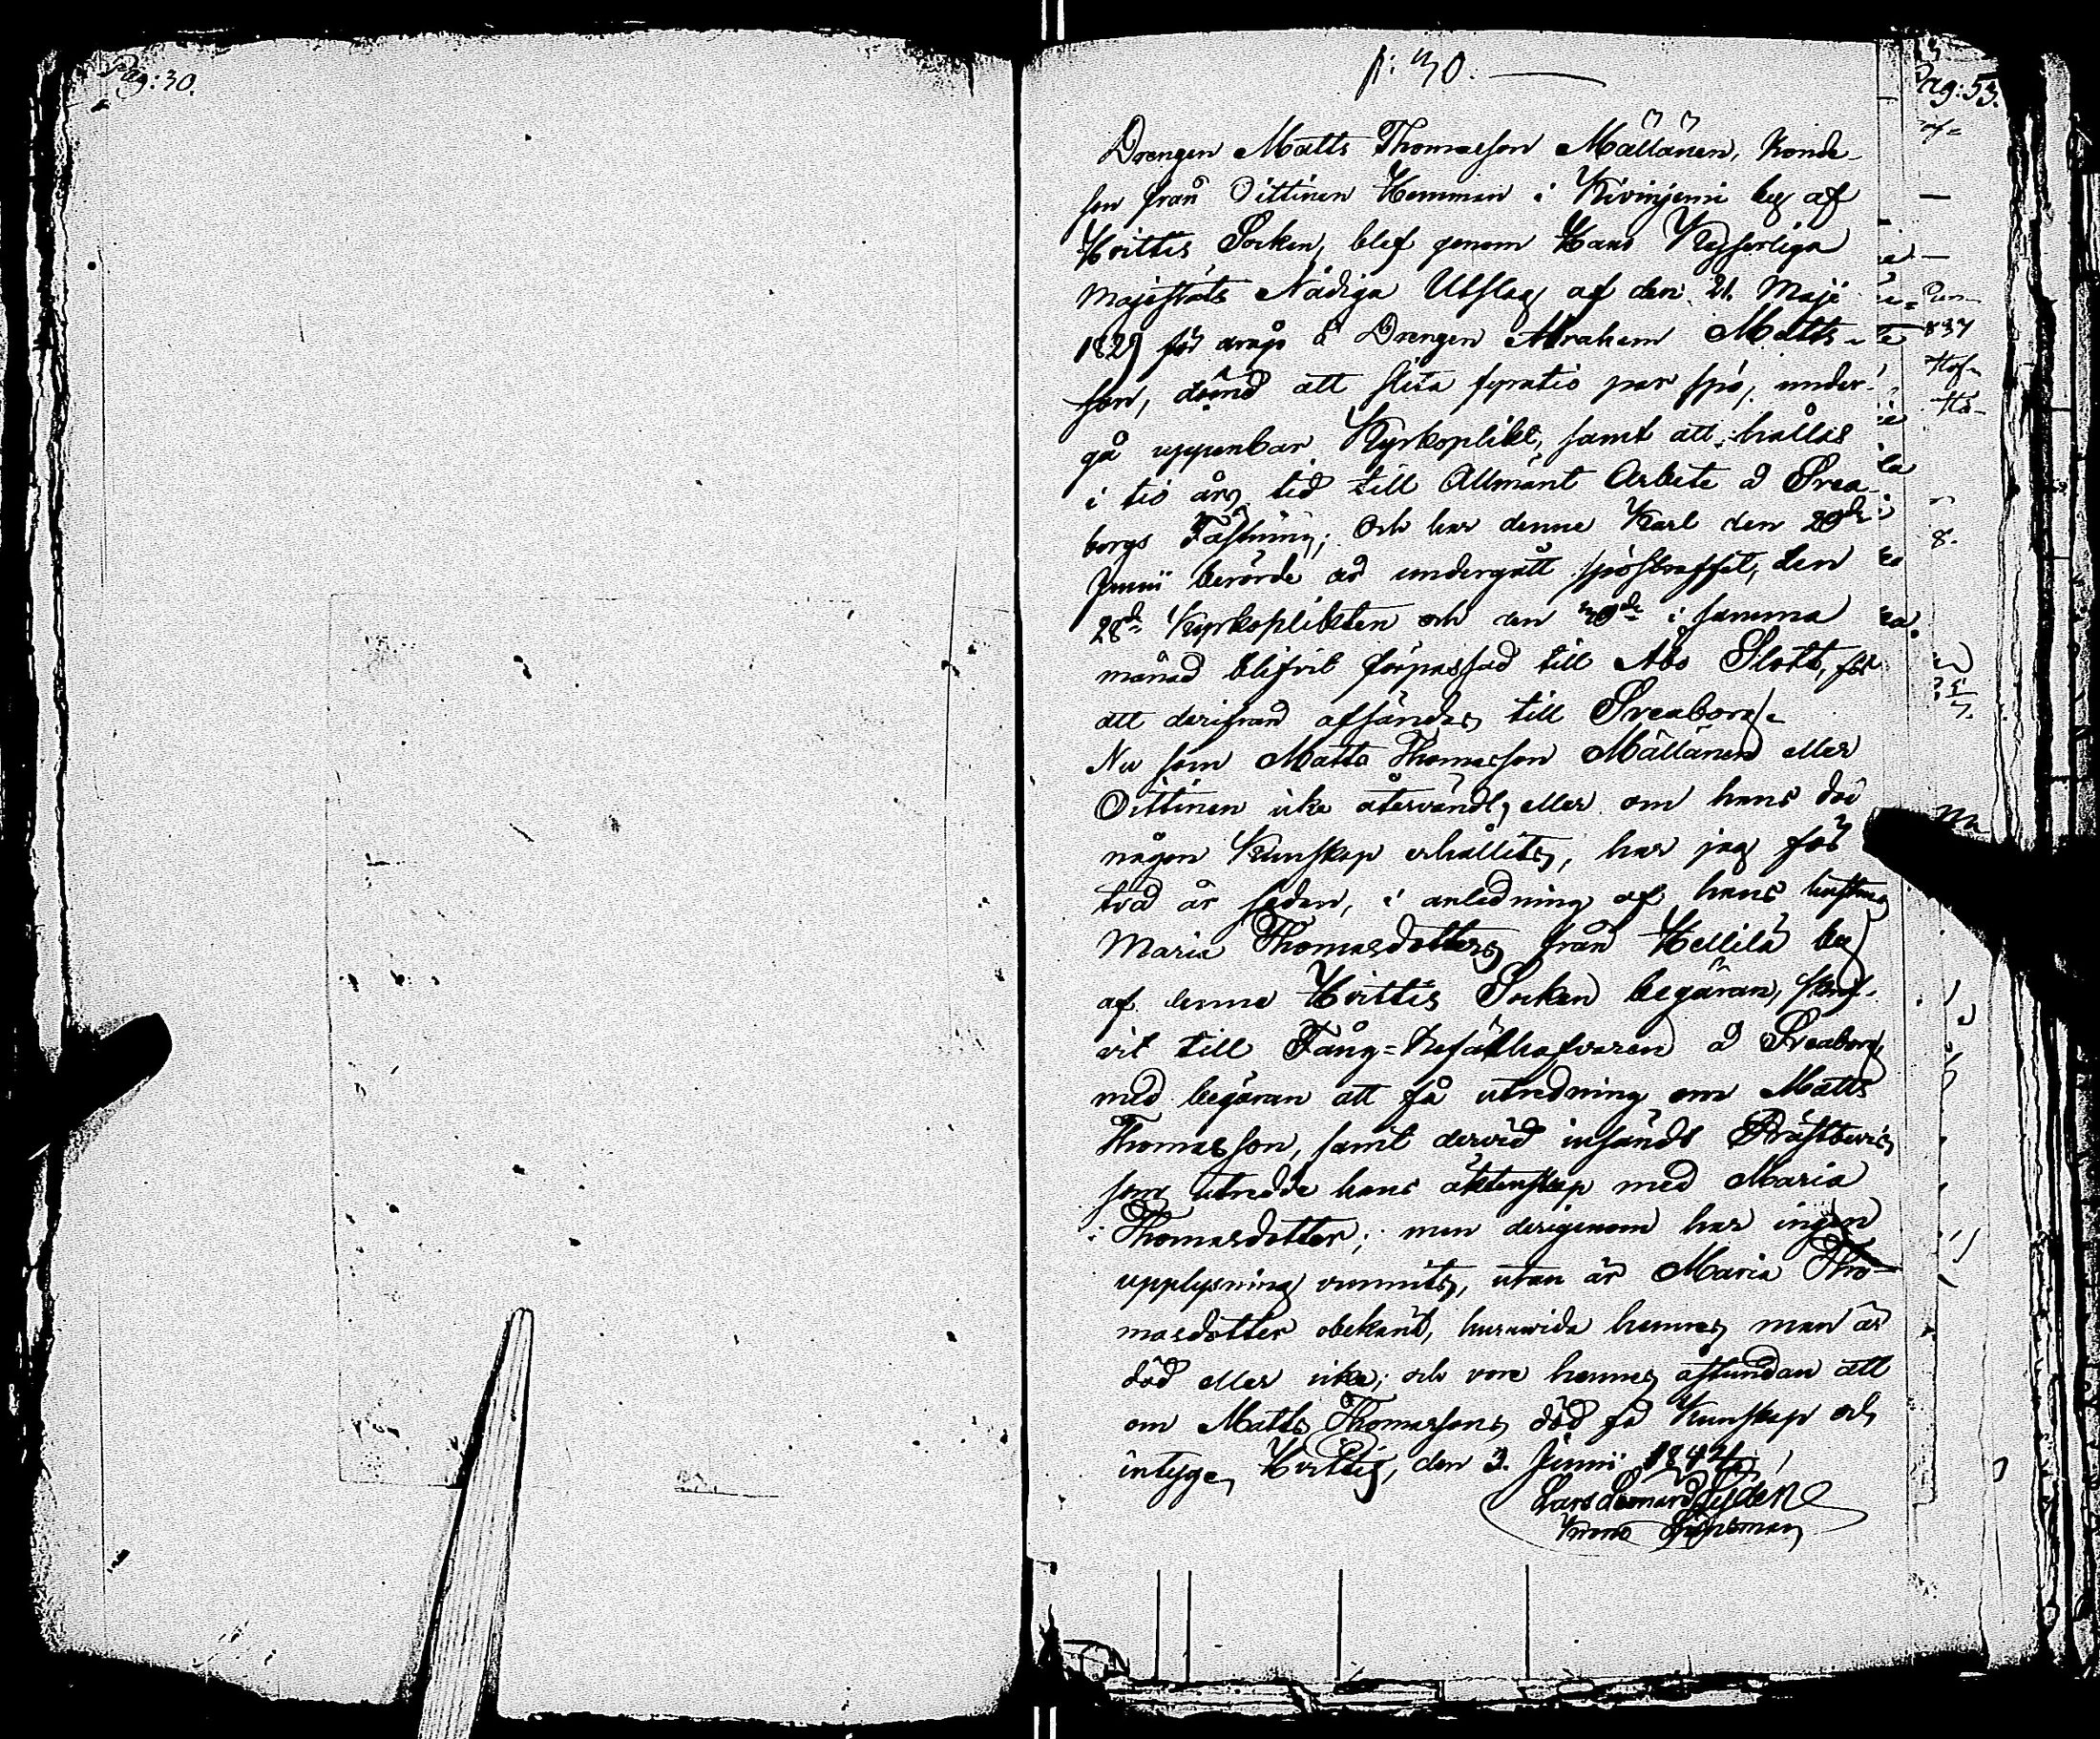 Pag: 30.
p: 30.
Pag: 53.
Drengen Matts Thomasson Mällänen, bonde-
son från Oittinen Hemman i Kivinjemi by af
Hvittis Socken, blef genom Hans Kejserliga
Majestäts Nådiga Utslag af den 21. Maji
1829 för dråp å Drengen Abraham Matts-
son, dömd att slita fyratio par spö, under-
gå uppenbar Kyrkoplikt, samt att hållas
i tio års tid till Allmänt Arbete å Svea-
borgs Fästning; Och har denne Karl den
Junii berörde år undergått spöstraffet, den
28de Kyrkoplikten och den 30de i samma
månad blifvit förpassad till Åbo Slott, för
att derifrån afsändas till Sveaborg.
Nu som Matts Thomasson Mällänen eller
Oittinen icke återvändt, eller om hans död
någon Kunskap erhållits, har jag för
två år sedan, i anledning af hans hustrus
Maria Thomasdotters från Hellilä by
af denna Hvittis Socken begäran, skrif-
vit till Fång-Befälhafvaren å Sveaborg
med begäran att få utredning om Matts
Thomasson, samt dervid insändt Prästbevis
som utredde hans äktenskap med Maria
Thomasdotter; men derigenom har ingen
upplysning vunnits, utan är Maria Tho-
masdotter obekant, huruvida hennes man är
död eller icke; och vore hennes åstundan att
om Matts Thomassons död få Kunskap och
intyga, Hvittis, den 3. Junii 1842.
Lars Leonard
Krono Länsman